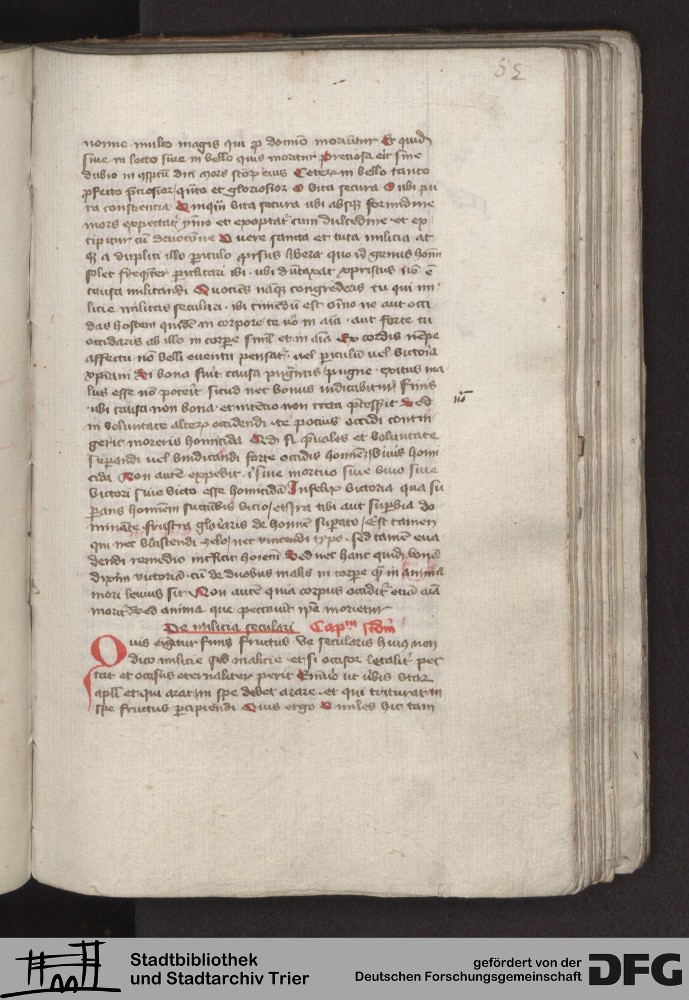 52
nonne multo magis qui p domino moriuntur Et quidem
siue in lecto siue in bello quis moritur preciosa erit sine
dubio in conspectu domini mors sanctorum eius Ceterum in bello tanto
profecto preciosior quanto et gloriosior O vita secura O ubi pu
ra consciencia O inquam vita secura ubi absque formidine
mors expectatur ymo et exoptatur cum dulcedine et ex
cipitur cum deuocione O vere sancta et tuta milicia at
que a duplici illo periculo prorsus libera quo id genus hominum
solet frequenter periclitari ubi ubi dumtaxat cristus non est
causa militandi Quociens namque congrederis tu qui mi
licie militas seculari ibi timendum est omnino ne aut occi
das hostem quidem in corpore te vero in anima aut forte tu
occidaris ab illo in corpore simul et in anima Ex cordis nempe
affectu non belli euentu pensatur vel periculum vel victoria
cristiani Si bona fuit causa pugnantis pugne exitus ma
lus esse non poterit sicud nec bonus iudicabitur finis
ubi causa non bona et intencio non recta precesserit Sed
in voluntate alterum occidendi te pocius occidi contin
gerit moreris homicida Quod si preuales et voluntate
superandi vel vindicandi forte occidis hominem viuis homi
cida Non autem expedit siue mortuo siue viuo siue
victori siue victo esse homicidam Infelix victoria qua su
perans hominem succumbis vicio et ira tibi aut superbia do
minante frustra gloriaris de homine superato Est tamen
qui nec vlciscendi zelo nec vincendi typo sed tamen eua
dendi remedio interficit hominem Sed nec hanc quidem bonam
dixerim victoriam cum de duobus malis in corpore quam in anima
mori leuius sit Non autem quia corpus occiditur etiam anima
moritur Sed anima que peccauit ipsa morietur
De milicia seculari Capm scdm
Quis igitur finis fructus ve secularis huius non
dico milicie sed malicie et si occisor letaliter pec
cat et occisus eternaliter perit Enimuero ut verbis vtar
apostoli et qui arat in spe debet arare et qui triturat in
spe fructus percipiendi Quis ergo O miles hic tam
Stadtbibliothek
und Stadtarchiv Trier
gefördert von der
Deutschen Forschungsgemeinschaft
DFG